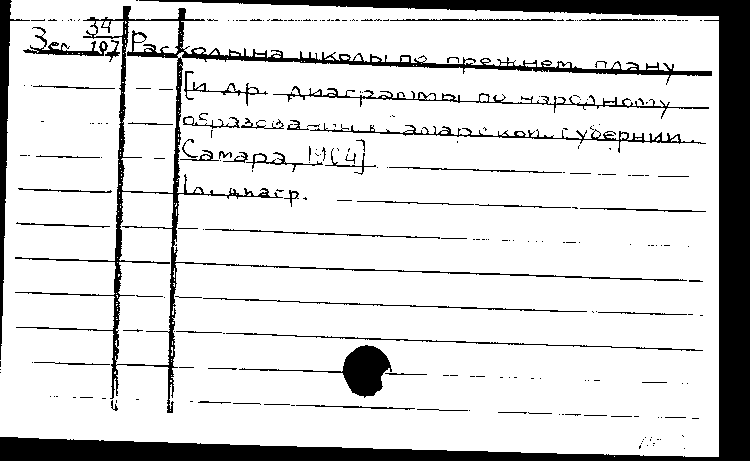 Зел 34/107 Расходы на школы по прежнем. плану
[и др. диаграммы по народному
образованию в Самарской губернии.
Самара, 1904]
1 л. диагр.